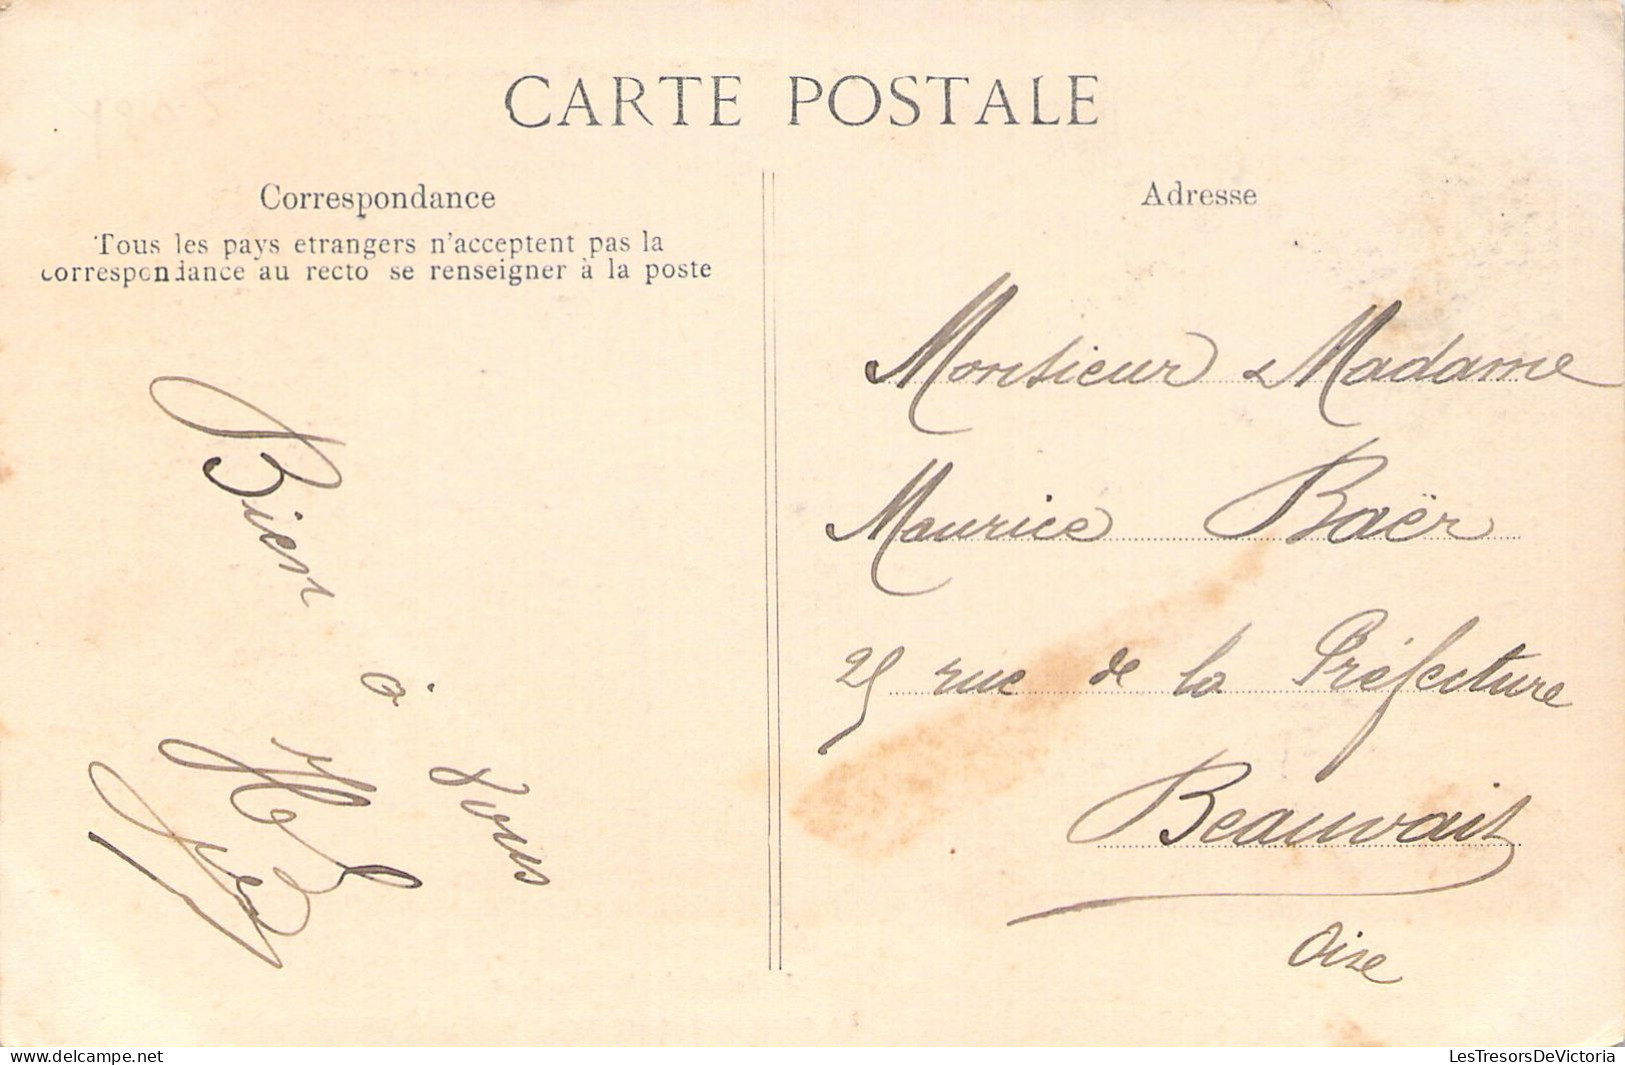 CARTE POSTALE
Correspondance
Tous les pays etrangers n'acceptent pas la
correspondance au recto se renseigner à la poste
Bien
à
vous
Adresse
Monsieur & Madame
Maurice Baër
25 rue de la Préfecture
Beauvais
Oise
www.delcampe.net
LesTresorsDeVictoria